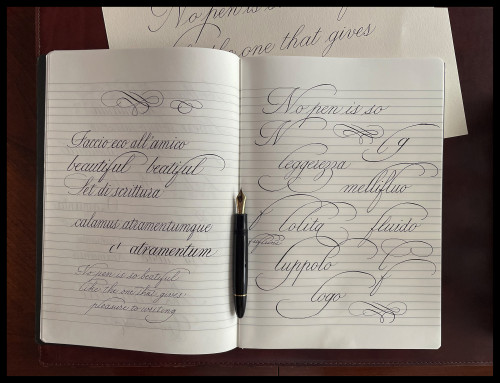 No pen is so
like one that gives
Faccio eco all'amico
beautiful beatiful
Set di scrittura
calamus atramentumque
et atramentum
No pen is so beatiful
like the one that gives
pleasure to writing
No pen is so
N g
leggerezza
mellifluo
Lolita fluido
luppolo
logo